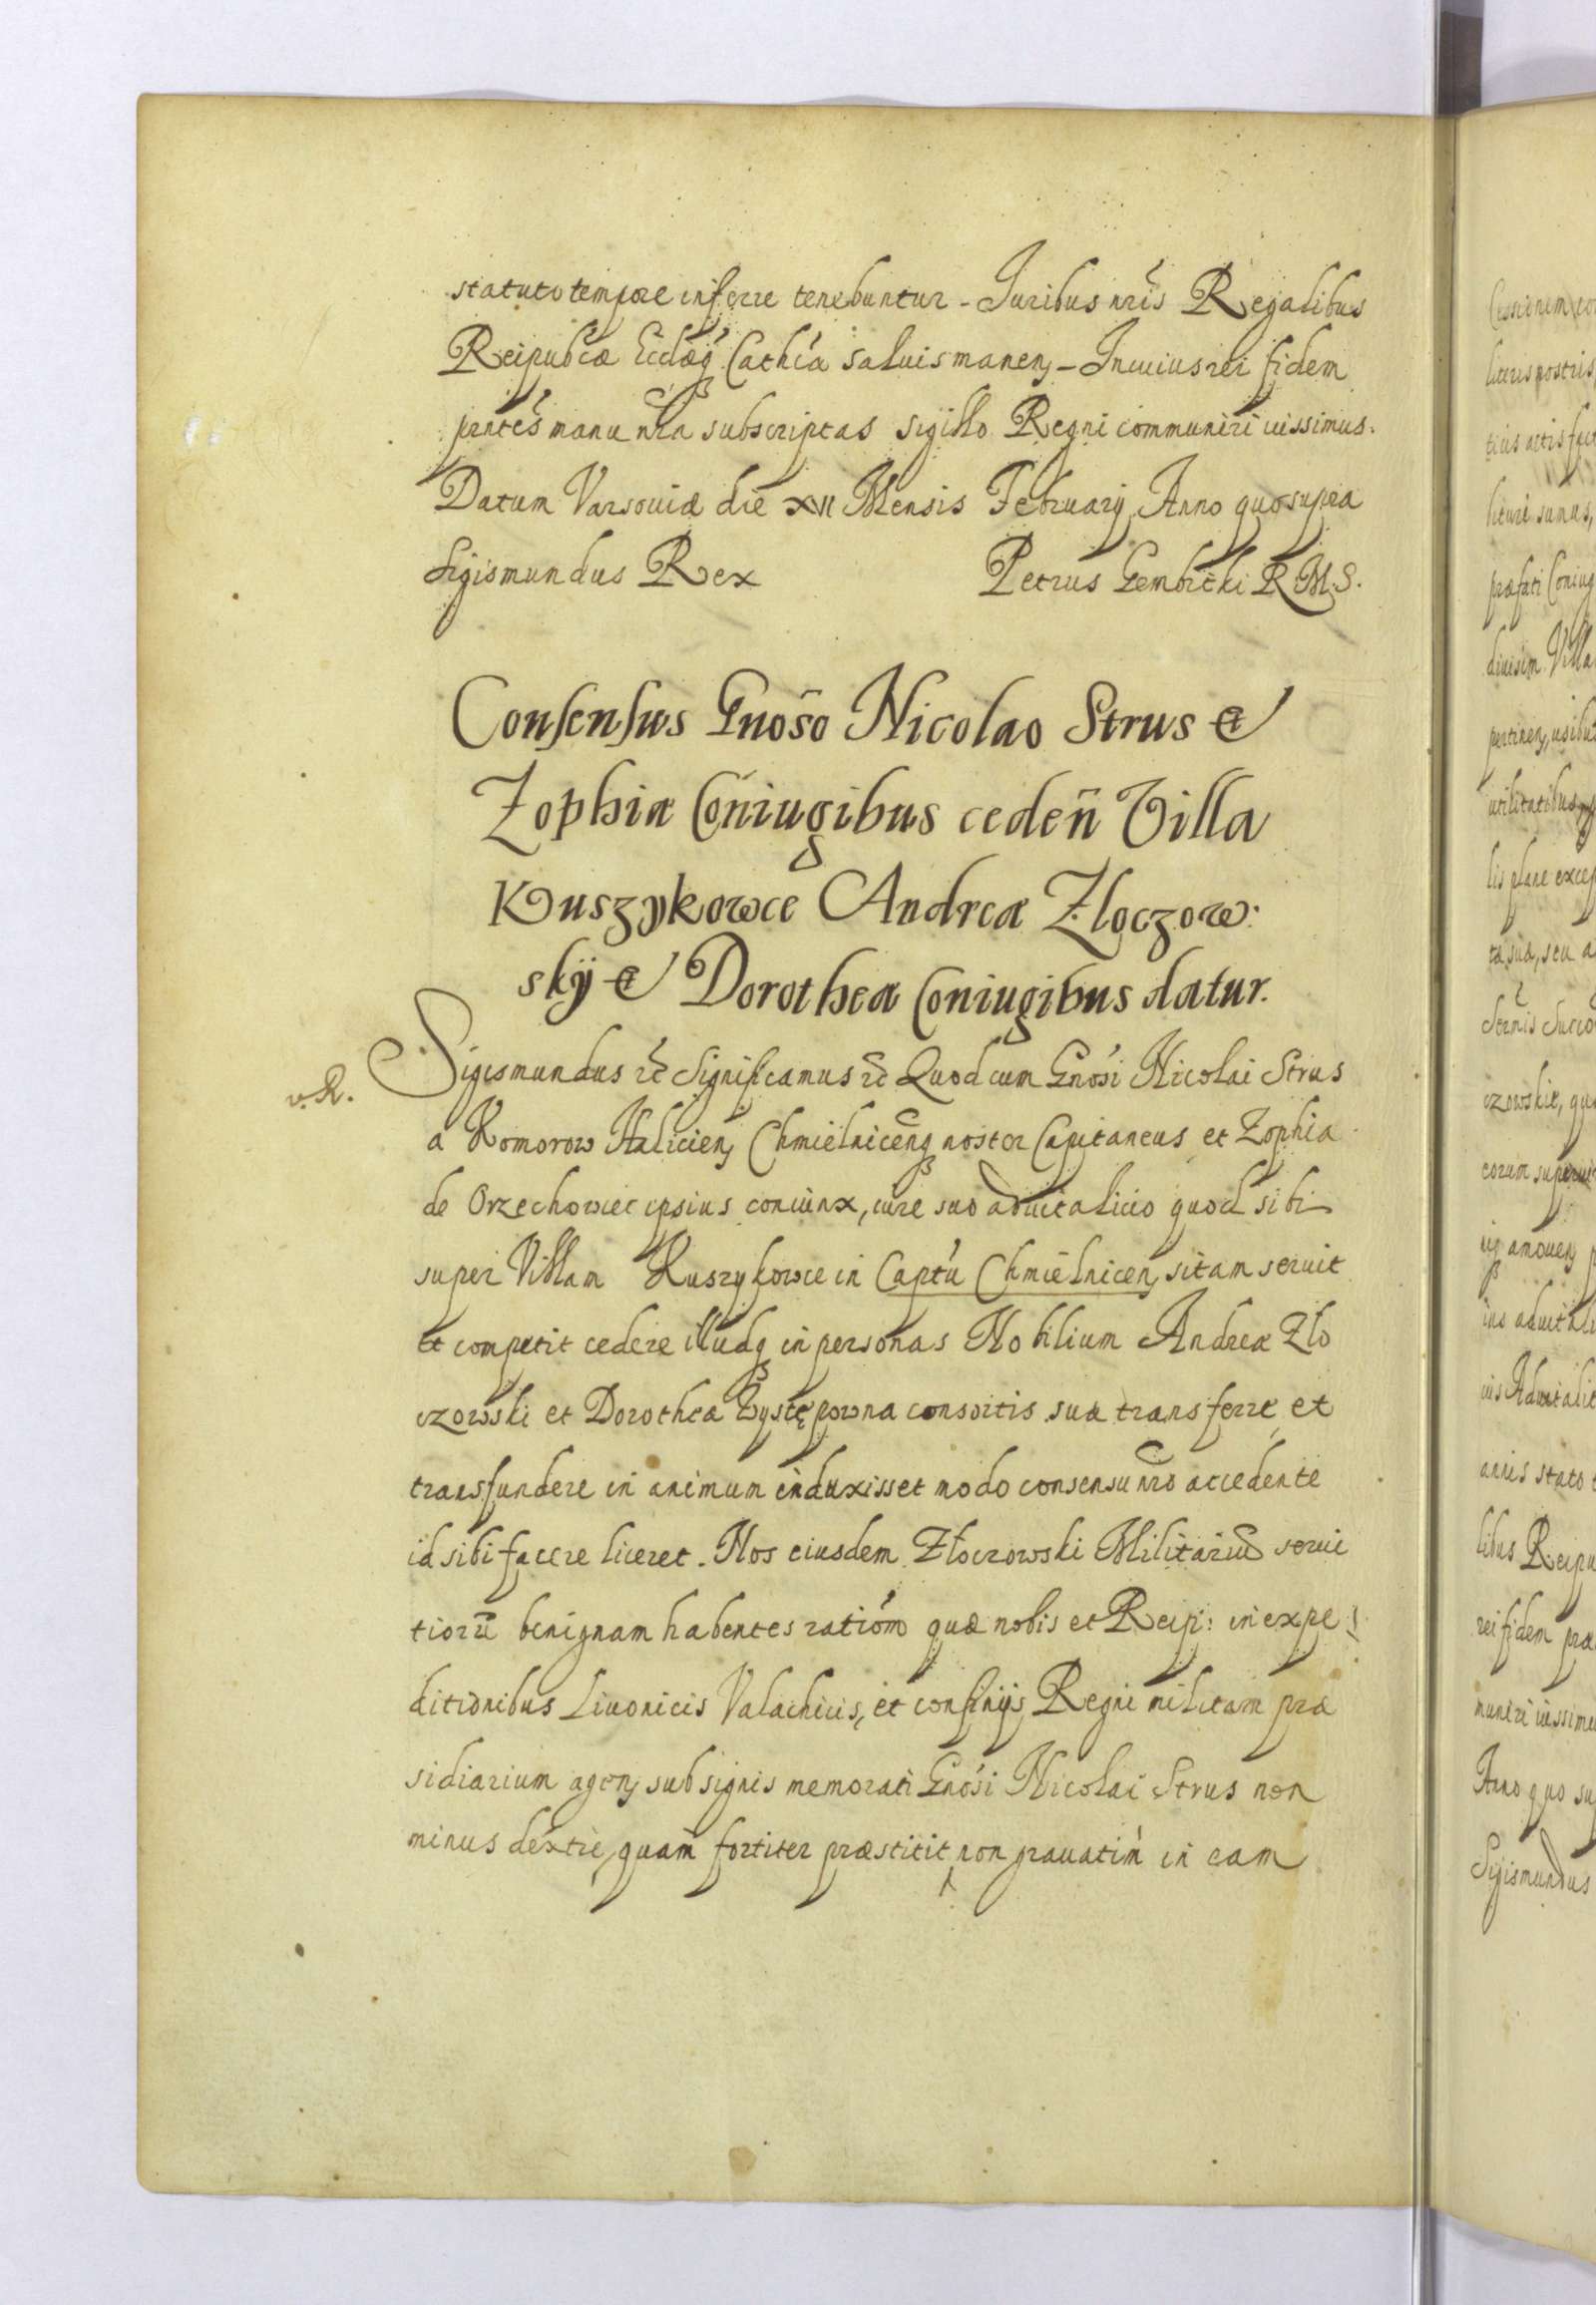 statuto tempore inferre tenebuntur - Juribus nris Regalibus
Reipubcæ Ecclæq Cathca saluis manen - In cuius rei fidem
prntes manu nra subscriptas sigillo Regni communiri iussimus.
Datum Varsouiæ die XVII Mensis February Anno quo supra
Sigismundus Rex Petrus Gembicki R M. S.
Consensus Gnoso Nicolao Strus et
Zophiæ Coniugibus ceden Villa
Kuszykowce Andreæ Zloczow:
sky et Dorotheæ Coniugibus datur.
v. R. Sigismundus etc Significamus etc Quod cum Gnosi Nicolai Strus
a Komorow Halicien Chmielnicenq noster Capitaneus et Zophia
de Orzechowiec ipsius coniunx, iure suo aduitalicio quod sibi
super Villam Kuszykowce in Captu Chmielnicen sitam seruit
et competit cedere illudq in personas Nobilium Andreæ Zlo
czowski et Dorothea consortis suæ transferre et
transfundere in animum induxisset modo consensu nro accedente
id sibi facere liceret. Nos eiusdem Zloczowski Militariu serui
tioru benignam habentes rationem quæ nobis et Reip: in expe
ditionibus Liuonicis Valachicis, et confinijs Regni militam præ
sidiarium agen sub signis memorati Gnosi Nicolai Strus non
minus dextre, quam fortiter præstitit non grauatim in eam
Cessionem
literis nostris
præfati Coniug
diuisim Villa
utilitatibus
lis plane excep
ta sua, seu a
czowskie, qu
ius aduitali
annis stato
libus Reipu
rei fidem præ
muniri iussimu
Anno quo su
Sigismundus